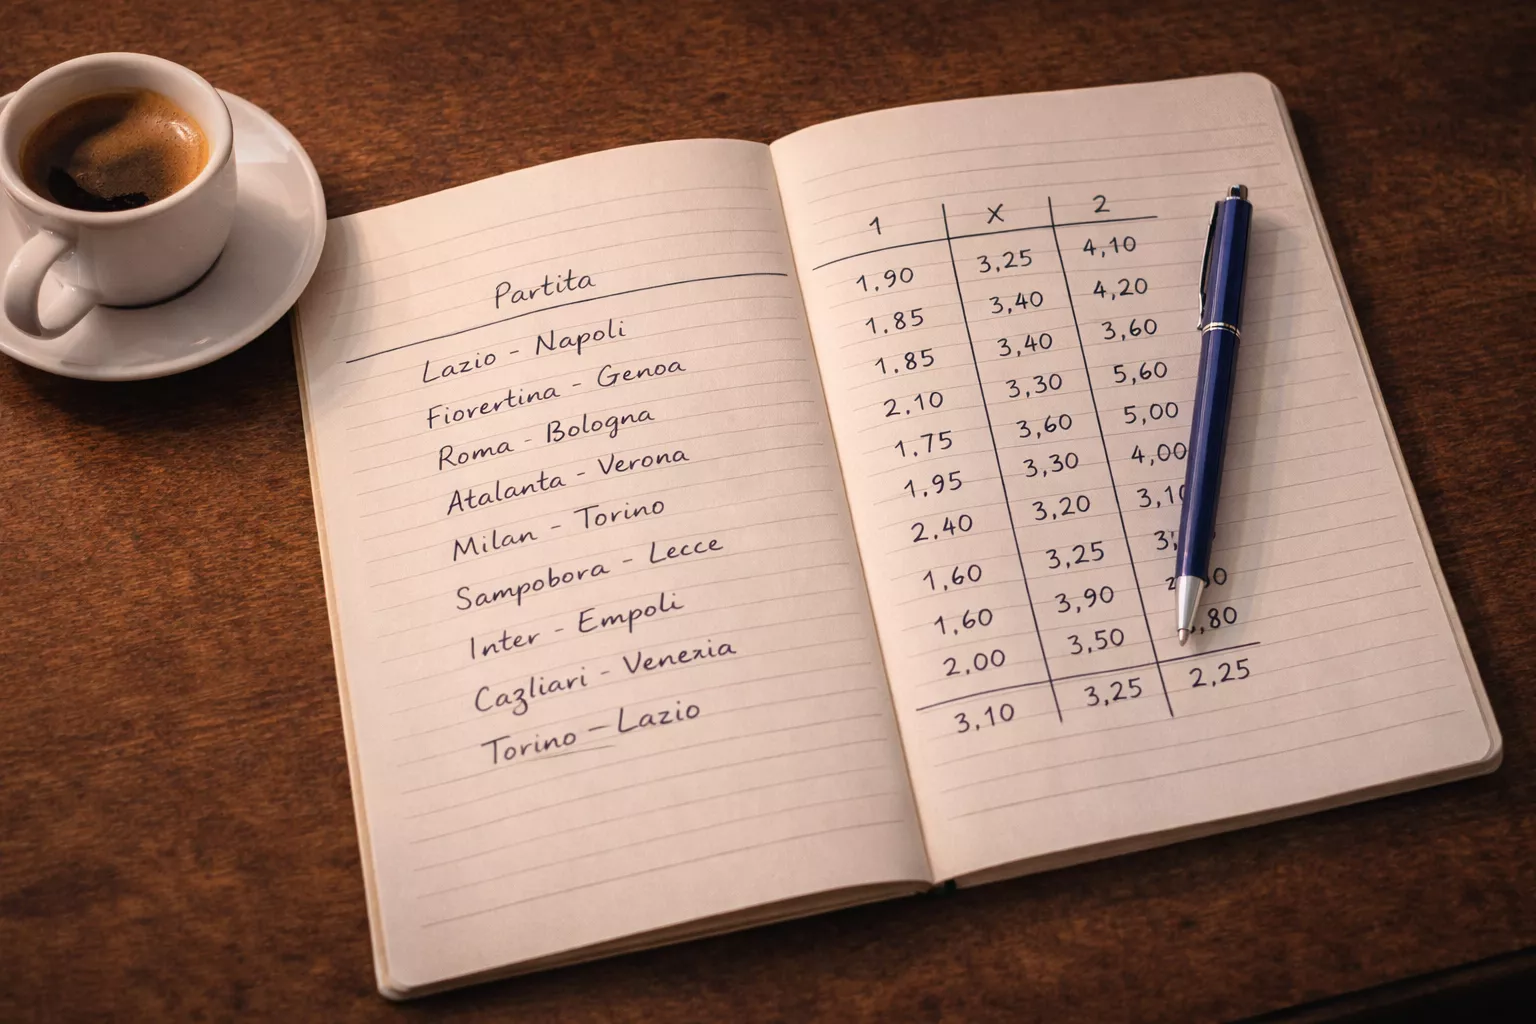 Partita
Lazio - Napoli
Fiorertina - Genoa
Roma - Bologna
Atalanta - Verona
Milan - Torino
Sampobora - Lecce
Inter - Empoli
Cazliari - Venezia
Torino - Lazio
1 X 2
1.90 3,25 4,10
1.85 3,40 4,20
1.85 3,40 3,60
2.10 3,30 5,60
1.75 3,60 5,00
1.95 3,30 4,00
2.40 3,20
1,60 3,25
1,60 3,90
2,00 3,50
3,10 3,25 2,25